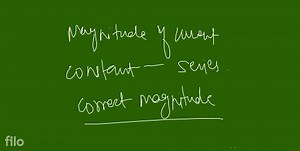 Magnitude of current
constant — series
correct magnitude
filo